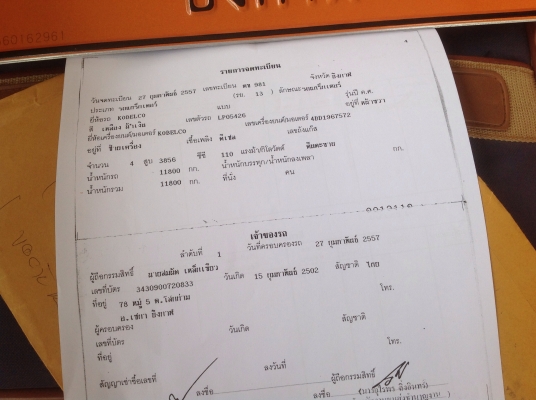 60162961
รายการจดทะเบียน
วันจดทะเบียน 27 กุมภาพันธ์ 2557 เลขทะเบียน ตข 981 จังหวัด บึงกาฬ
ประเภท รถแทร็กเตอร์ (รย. 13 ) ลักษณะรถแทร็กเตอร์
ยี่ห้อรถ KOBELCO แบบ รุ่นปี ค.ศ.
สี เหลือง เลขตัวรถ LP05426 อยู่ที่
ยี่ห้อเครื่องยนต์ KOBELCO เลขเครื่องยนต์ 4BD1967572
อยู่ที่ ซ้ายเครื่อง เชื้อเพลิง ดีเซล เลขถังแก๊ส
จำนวน 4 สูบ 3856 ซีซี 110 แรงม้า
น้ำหนักรถ 11800 กก. น้ำหนักบรรทุก/น้ำหนักลงเพลา กก.
น้ำหนักรวม 11800 กก. ที่นั่ง คน
เจ้าของรถ
ลำดับที่ 1 วันที่ครอบครองรถ 27 กุมภาพันธ์ 2557
ผู้ถือกรรมสิทธิ์
เลขที่บัตร 3430900720833 วันเกิด 15 กุมภาพันธ์ 2502 สัญชาติ ไทย
ที่อยู่ 78 หมู่ 5 ต.โสกก่าม โทร.
อ.เซกา จ.บึงกาฬ
ผู้ครอบครอง วันเกิด สัญชาติ
เลขที่บัตร
ที่อยู่ โทร.
สัญญาเช่าซื้อเลขที่ ลงวันที่ ผู้ถือกรรมสิทธิ์
ลงชื่อ ลงชื่อ